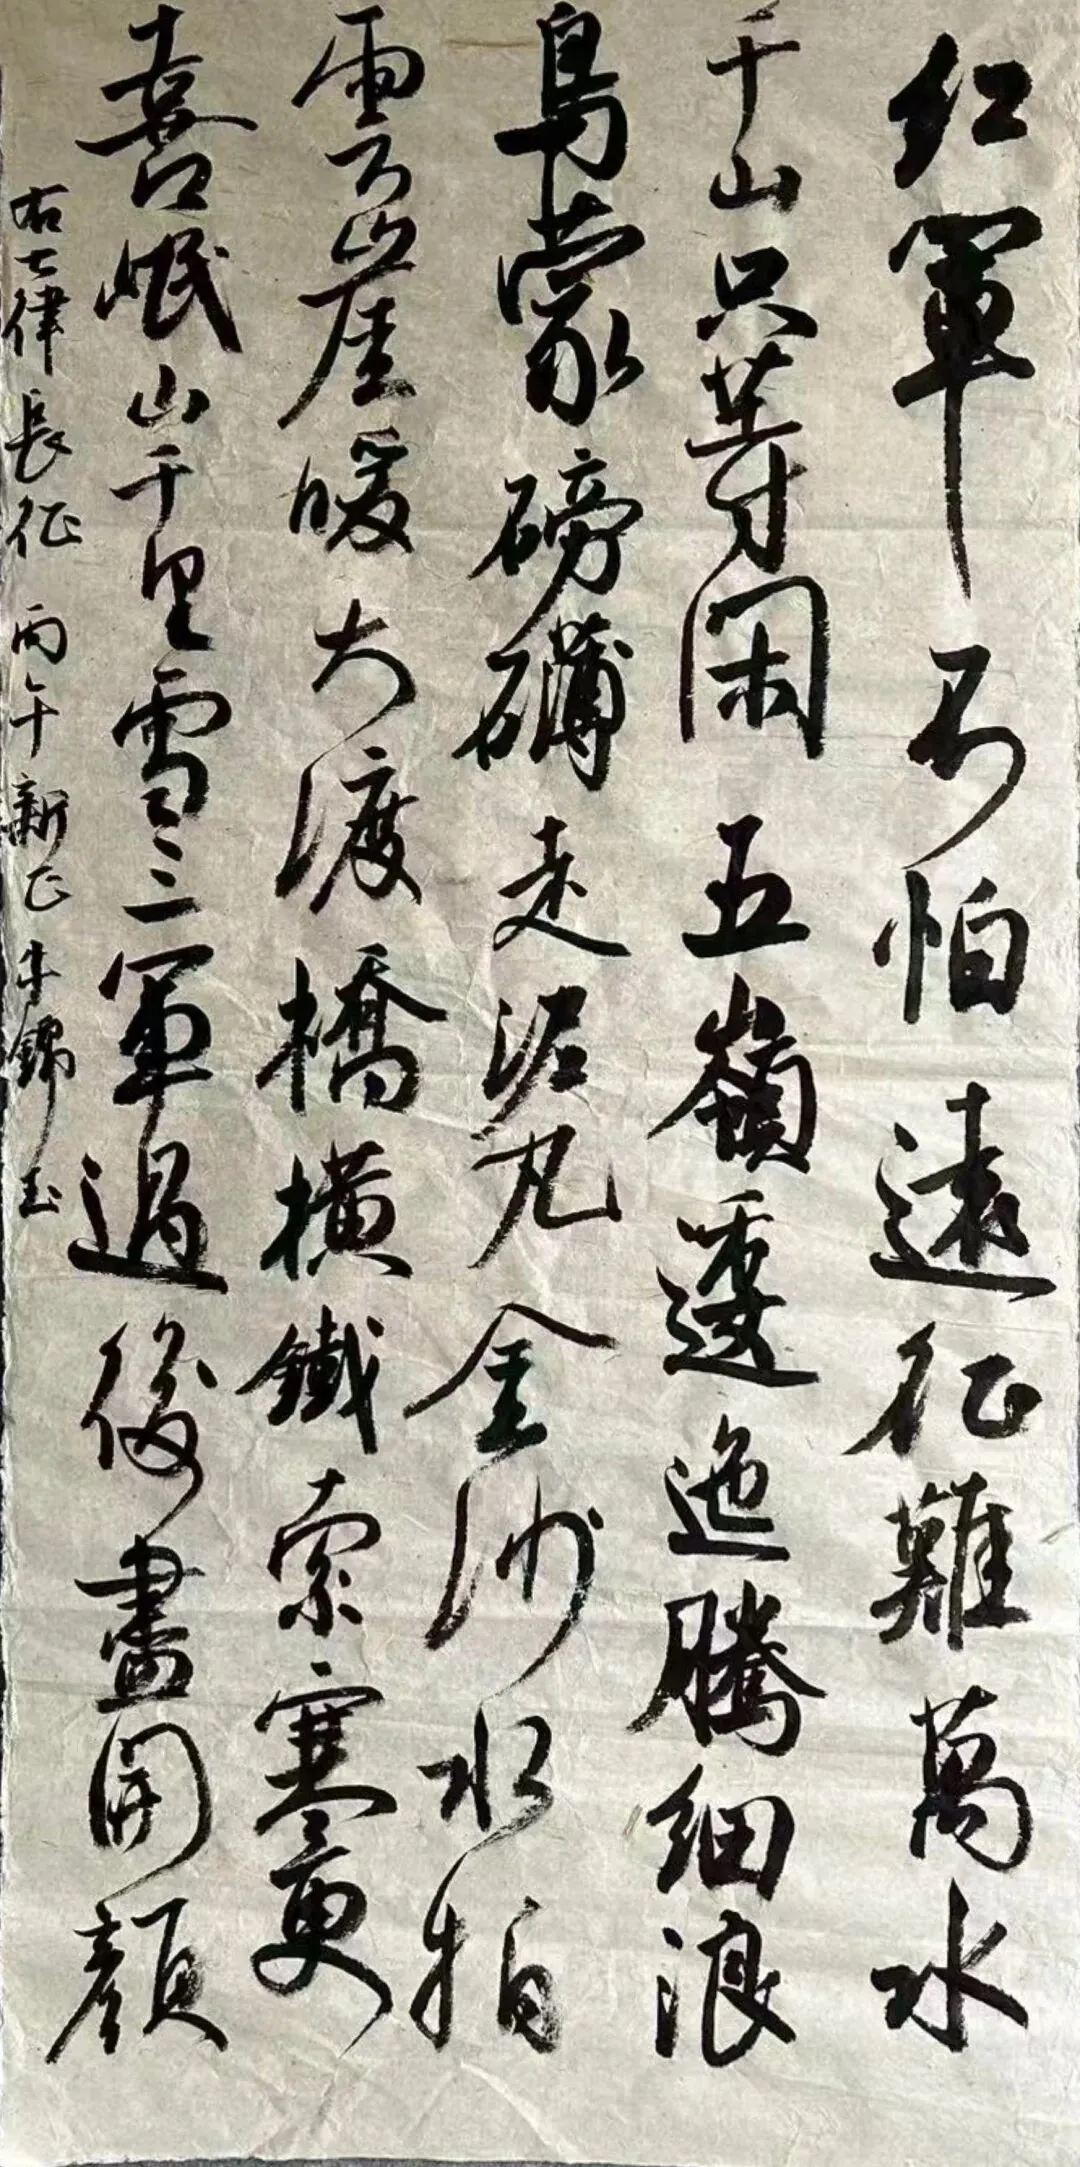 红軍不怕遠征難萬水
千山只等闲五嶺逶迤騰细浪
烏蒙磅礴走泥丸金沙水拍
雲崖暖大渡橋横鐵索寒更
喜岷山千里雪三軍過後盡開顔
右七律長征丙午新正牛錦玉